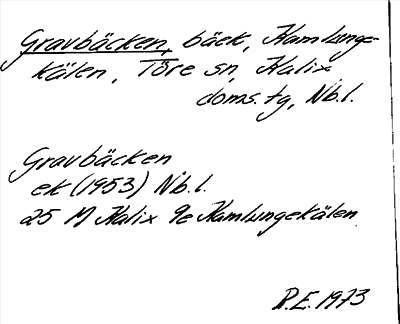 Gravbäcken, bäck, Kamlunge-
kälen, Töre sn, Kalix
doms. tg, Nb.l.
Gravbäcken
ek (1953) Nb.l.
25 M Kalix 9e Kamlungekälen
R.E. 1973